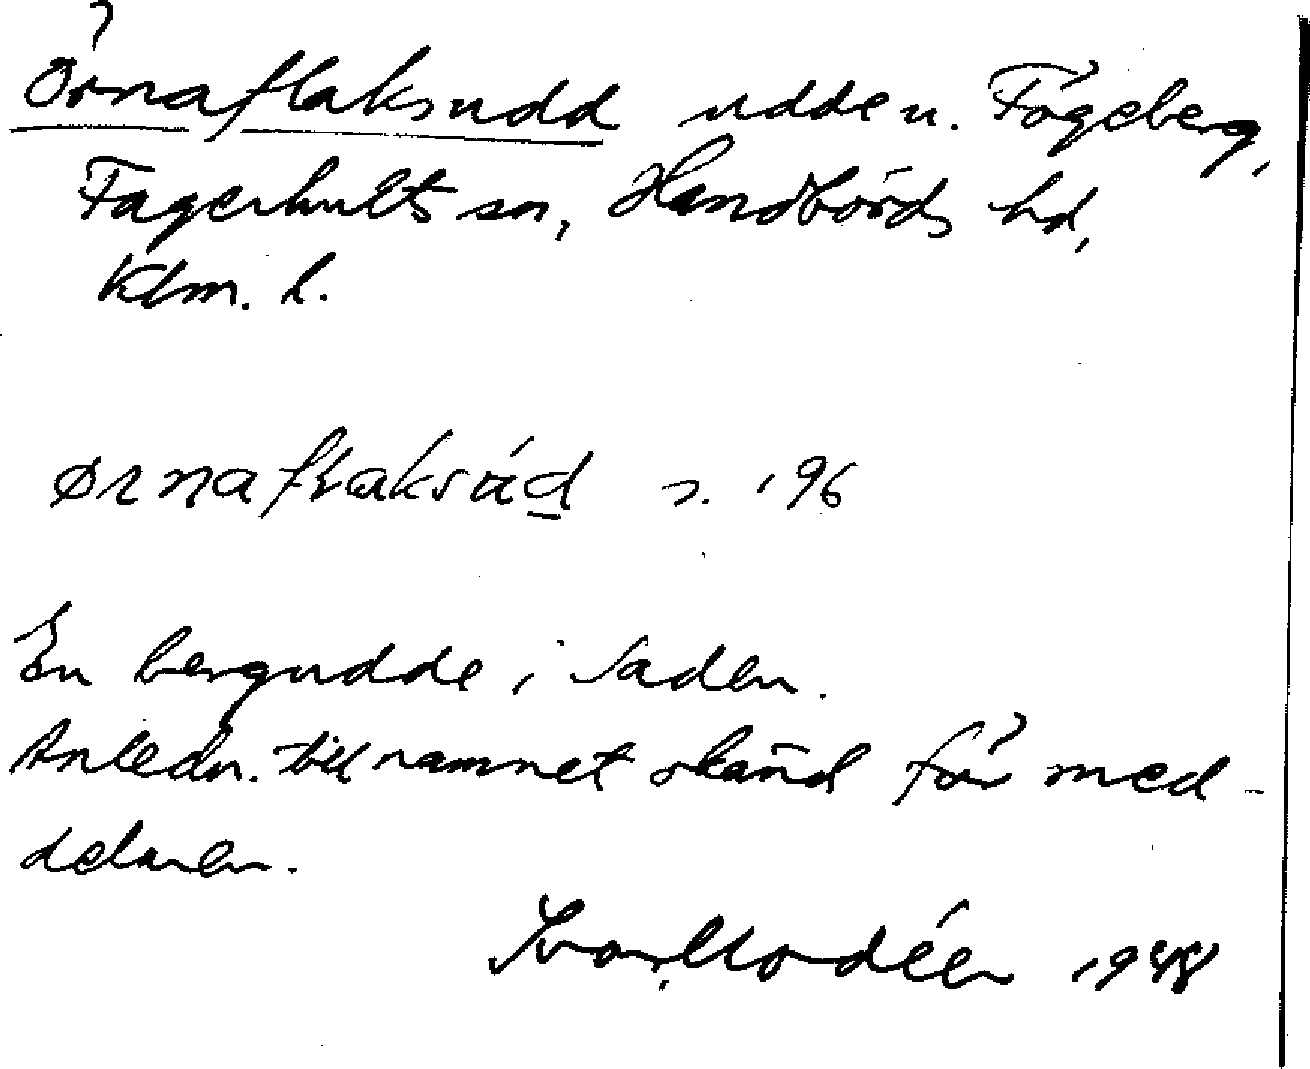 Örnaflaksudd udde u. Fögeberg,
Fagerhults sn, Handbörds hd,
Klm. l.
ørnaflaksúd s. 196
En bergudde i Saden.
Anledn. till namnet okänd för med-
delaren.
Ivar Modéer 1948